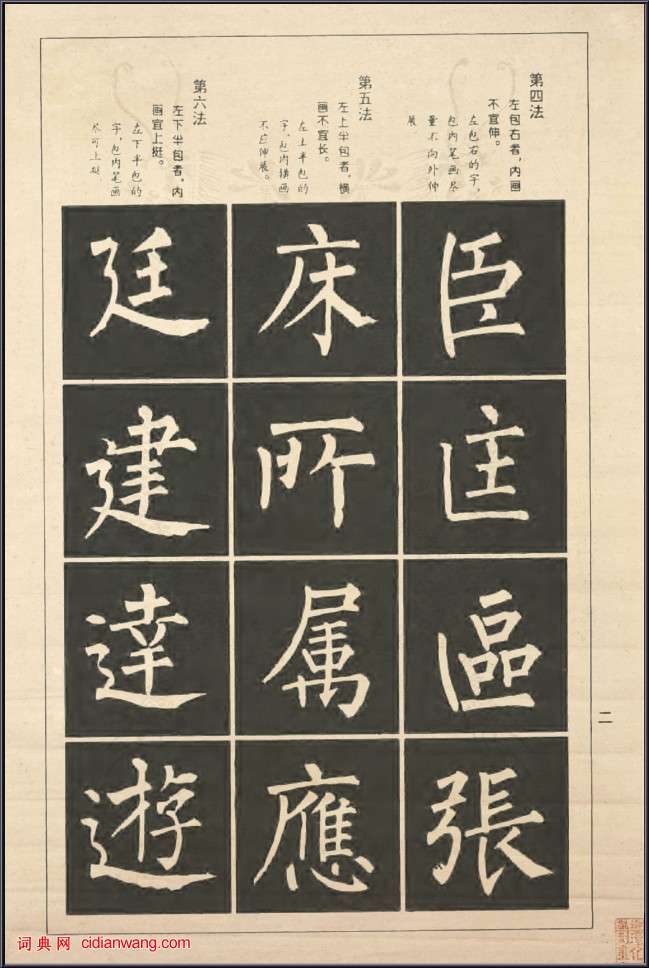 第四法
左包右者，内画
不宜伸。
左包右的字，
包内笔画尽
量不向外伸
展
臣
匡
區
張
第五法
左上半包者，横
画不宜长。
左上半包的
字，包内横画
不应伸展。
床
所
属
應
第六法
左下半包者，内
画宜上挺。
左下半包的
字，包内笔画
尽可上挺
廷
建
達
遊
二
词典网 cidianwang.com